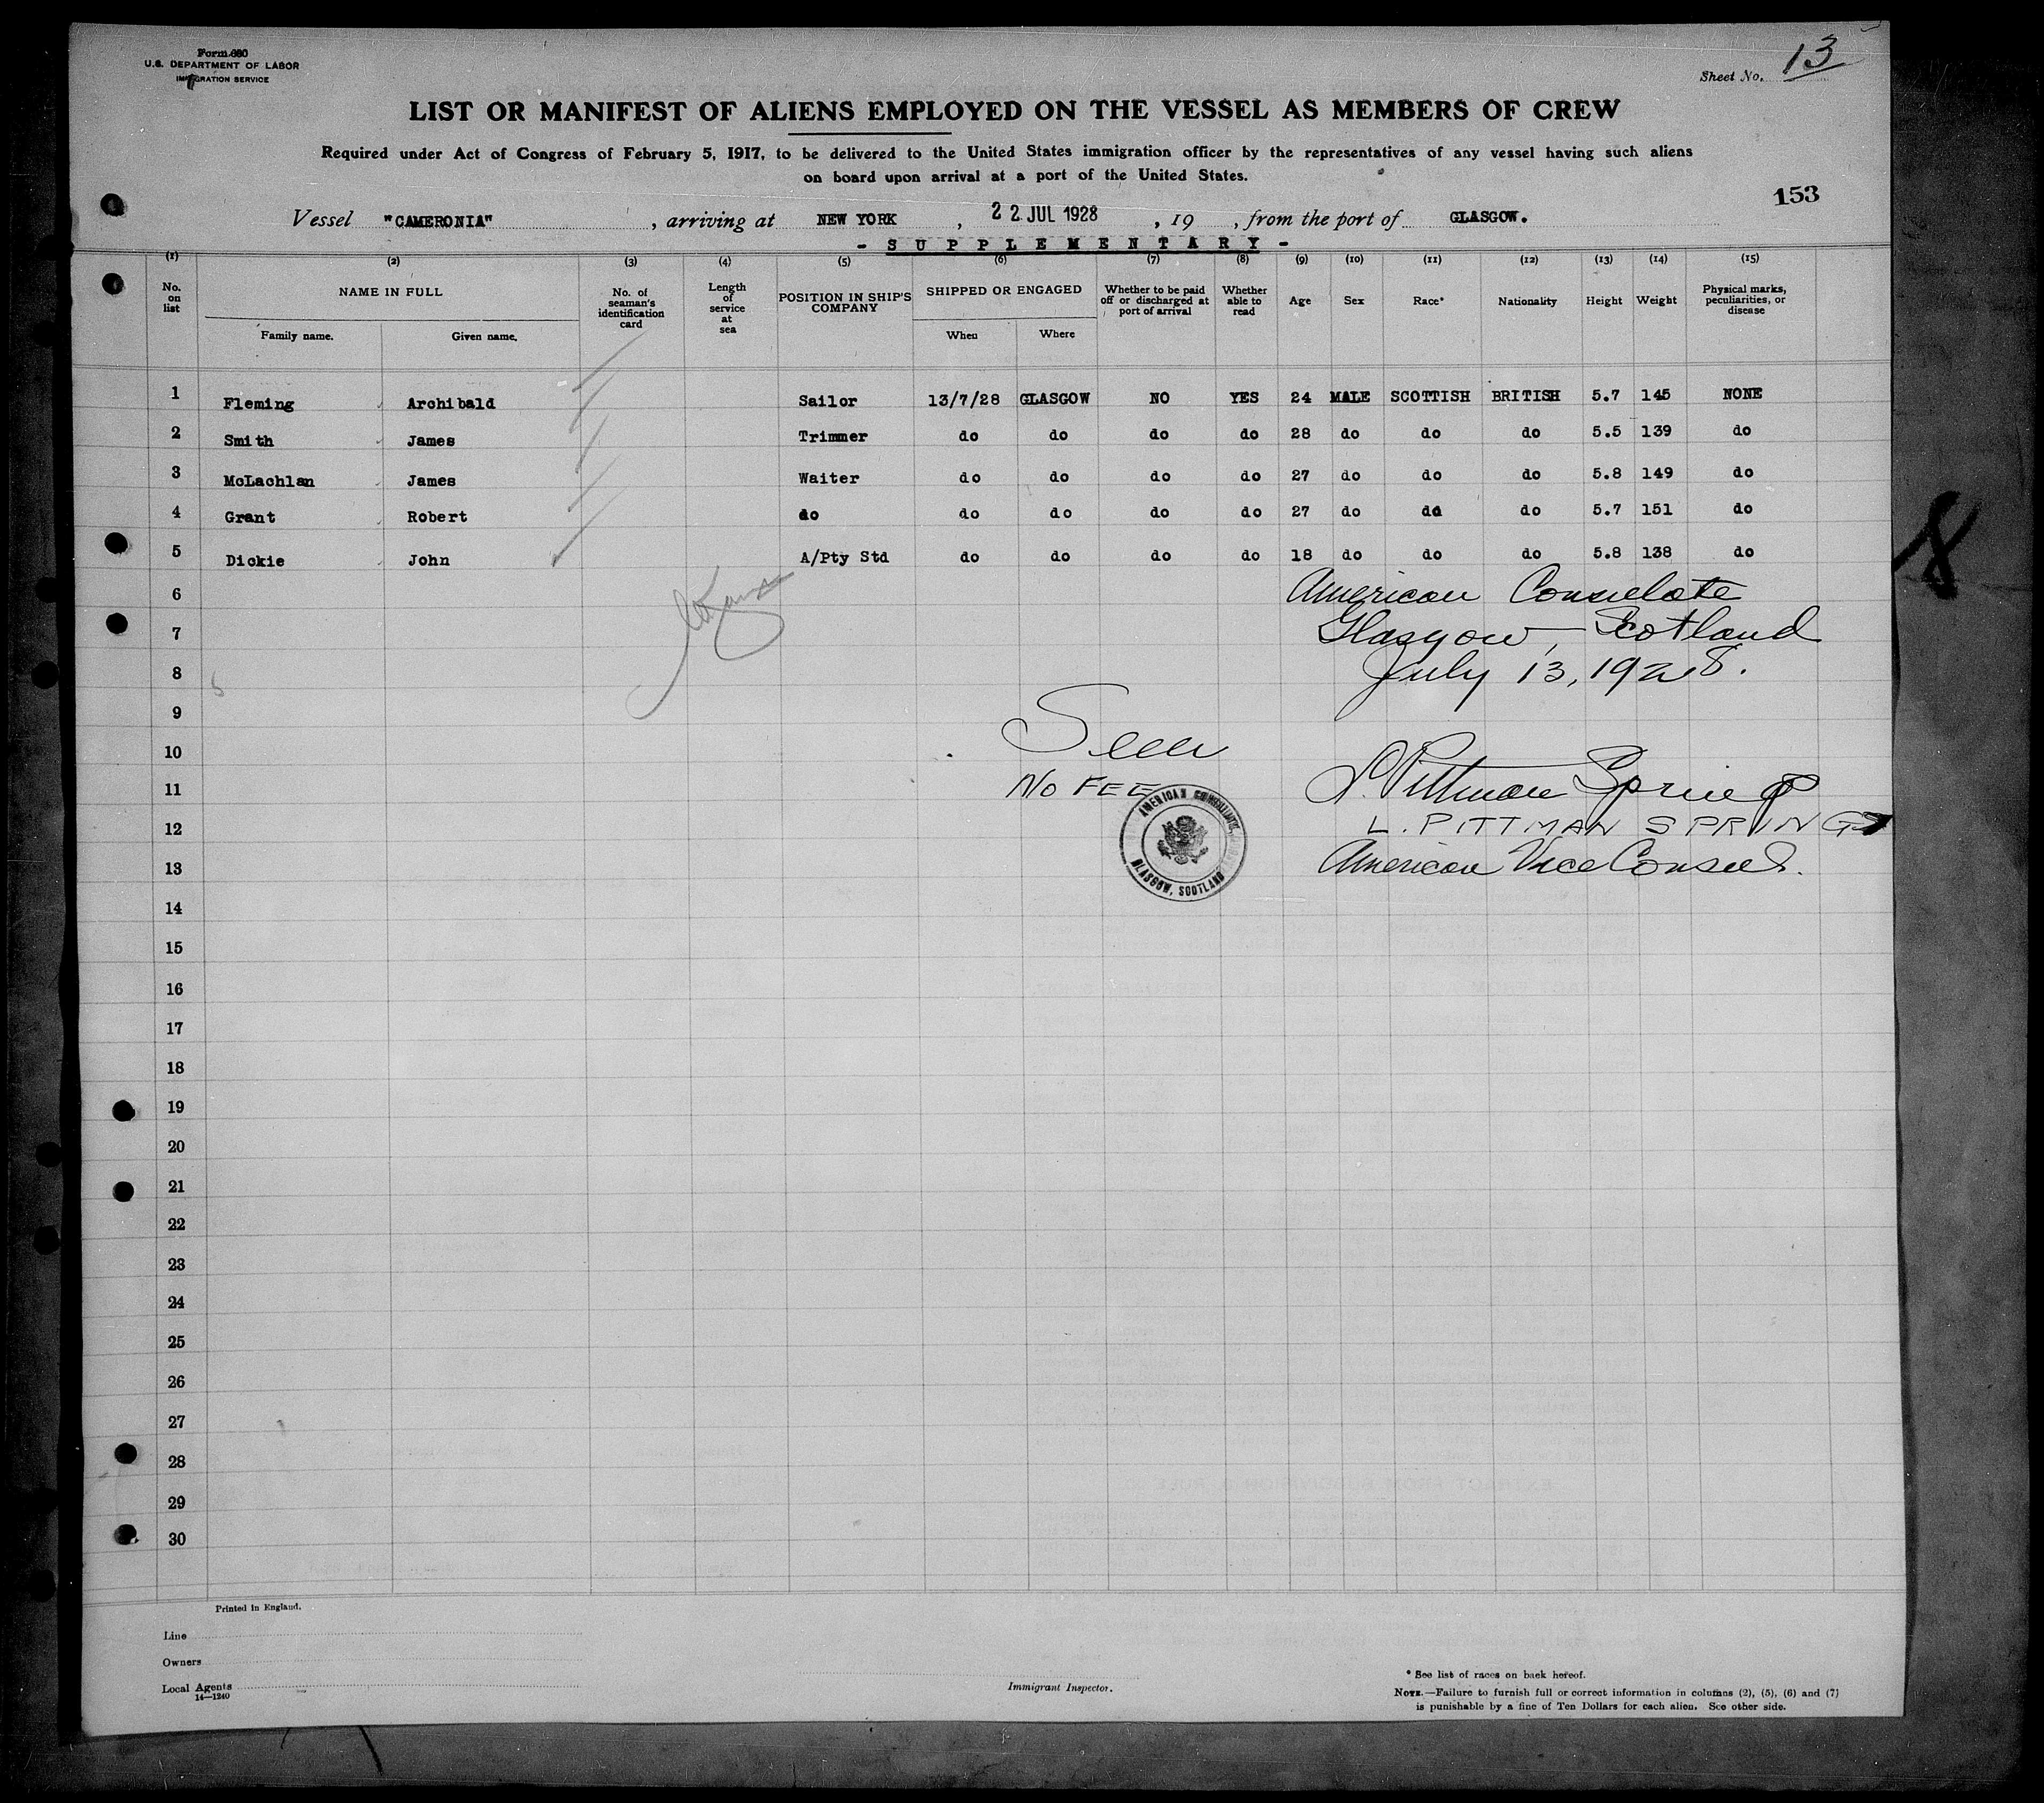 Form 680
U.S. DEPARTMENT OF LABOR
IMMIGRATION SERVICE
Sheet No. 13
LIST OR MANIFEST OF ALIENS EMPLOYED ON THE VESSEL AS MEMBERS OF CREW
Required under Act of Congress of February 5, 1917, to be delivered to the United States immigration officer by the representatives of any vessel having such aliens
on board upon arrival at a port of the United States.
153
Vessel "CAMERONIA", arriving at NEW YORK, 22 JUL 1928, 19 , from the port of GLASGOW.
- SUPPLEMENTARY -
(1) (2) (3) (4) (5) (6) (7) (8) (9) (10) (11) (12) (13) (14) (15)
No. on list NAME IN FULL Family name. Given name. No. of seaman's identification card Length of service at sea POSITION IN SHIP'S COMPANY SHIPPED OR ENGAGED When Where Whether to be paid off or discharged at port of arrival Whether able to read Age Sex Race* Nationality Height Weight Physical marks, peculiarities, or disease
1 Fleming Archibald Sailor 13/7/28 GLASGOW NO YES 24 MALE SCOTTISH BRITISH 5.7 145 NONE
2 Smith James Trimmer do do do do 28 do do do 5.5 139 do
3 McLachlan James Waiter do do do do 27 do do do 5.8 149 do
4 Grant Robert do do do do do 27 do do do 5.7 151 do
5 Dickie John A/Pty Std do do do do 18 do do do 5.8 138 do
6 American Consulate
7 Glasgow, Scotland
8 July 13, 1928.
9
10 Seen
11 No FEE L. Pittman Springs
12 L. PITTMAN SPRINGS
13 American Vice Consul.
AMERICAN CONSULATE,
GLASGOW, SCOTLAND
14
15
16
17
18
19
20
21
22
23
24
25
26
27
28
29
30
8
Printed in England.
Line
Owners
Local Agents
14—1240
Immigrant Inspector.
* See list of races on back hereof.
NOTE.—Failure to furnish full or correct information in columns (2), (5), (6) and (7)
is punishable by a fine of Ten Dollars for each alien. See other side.